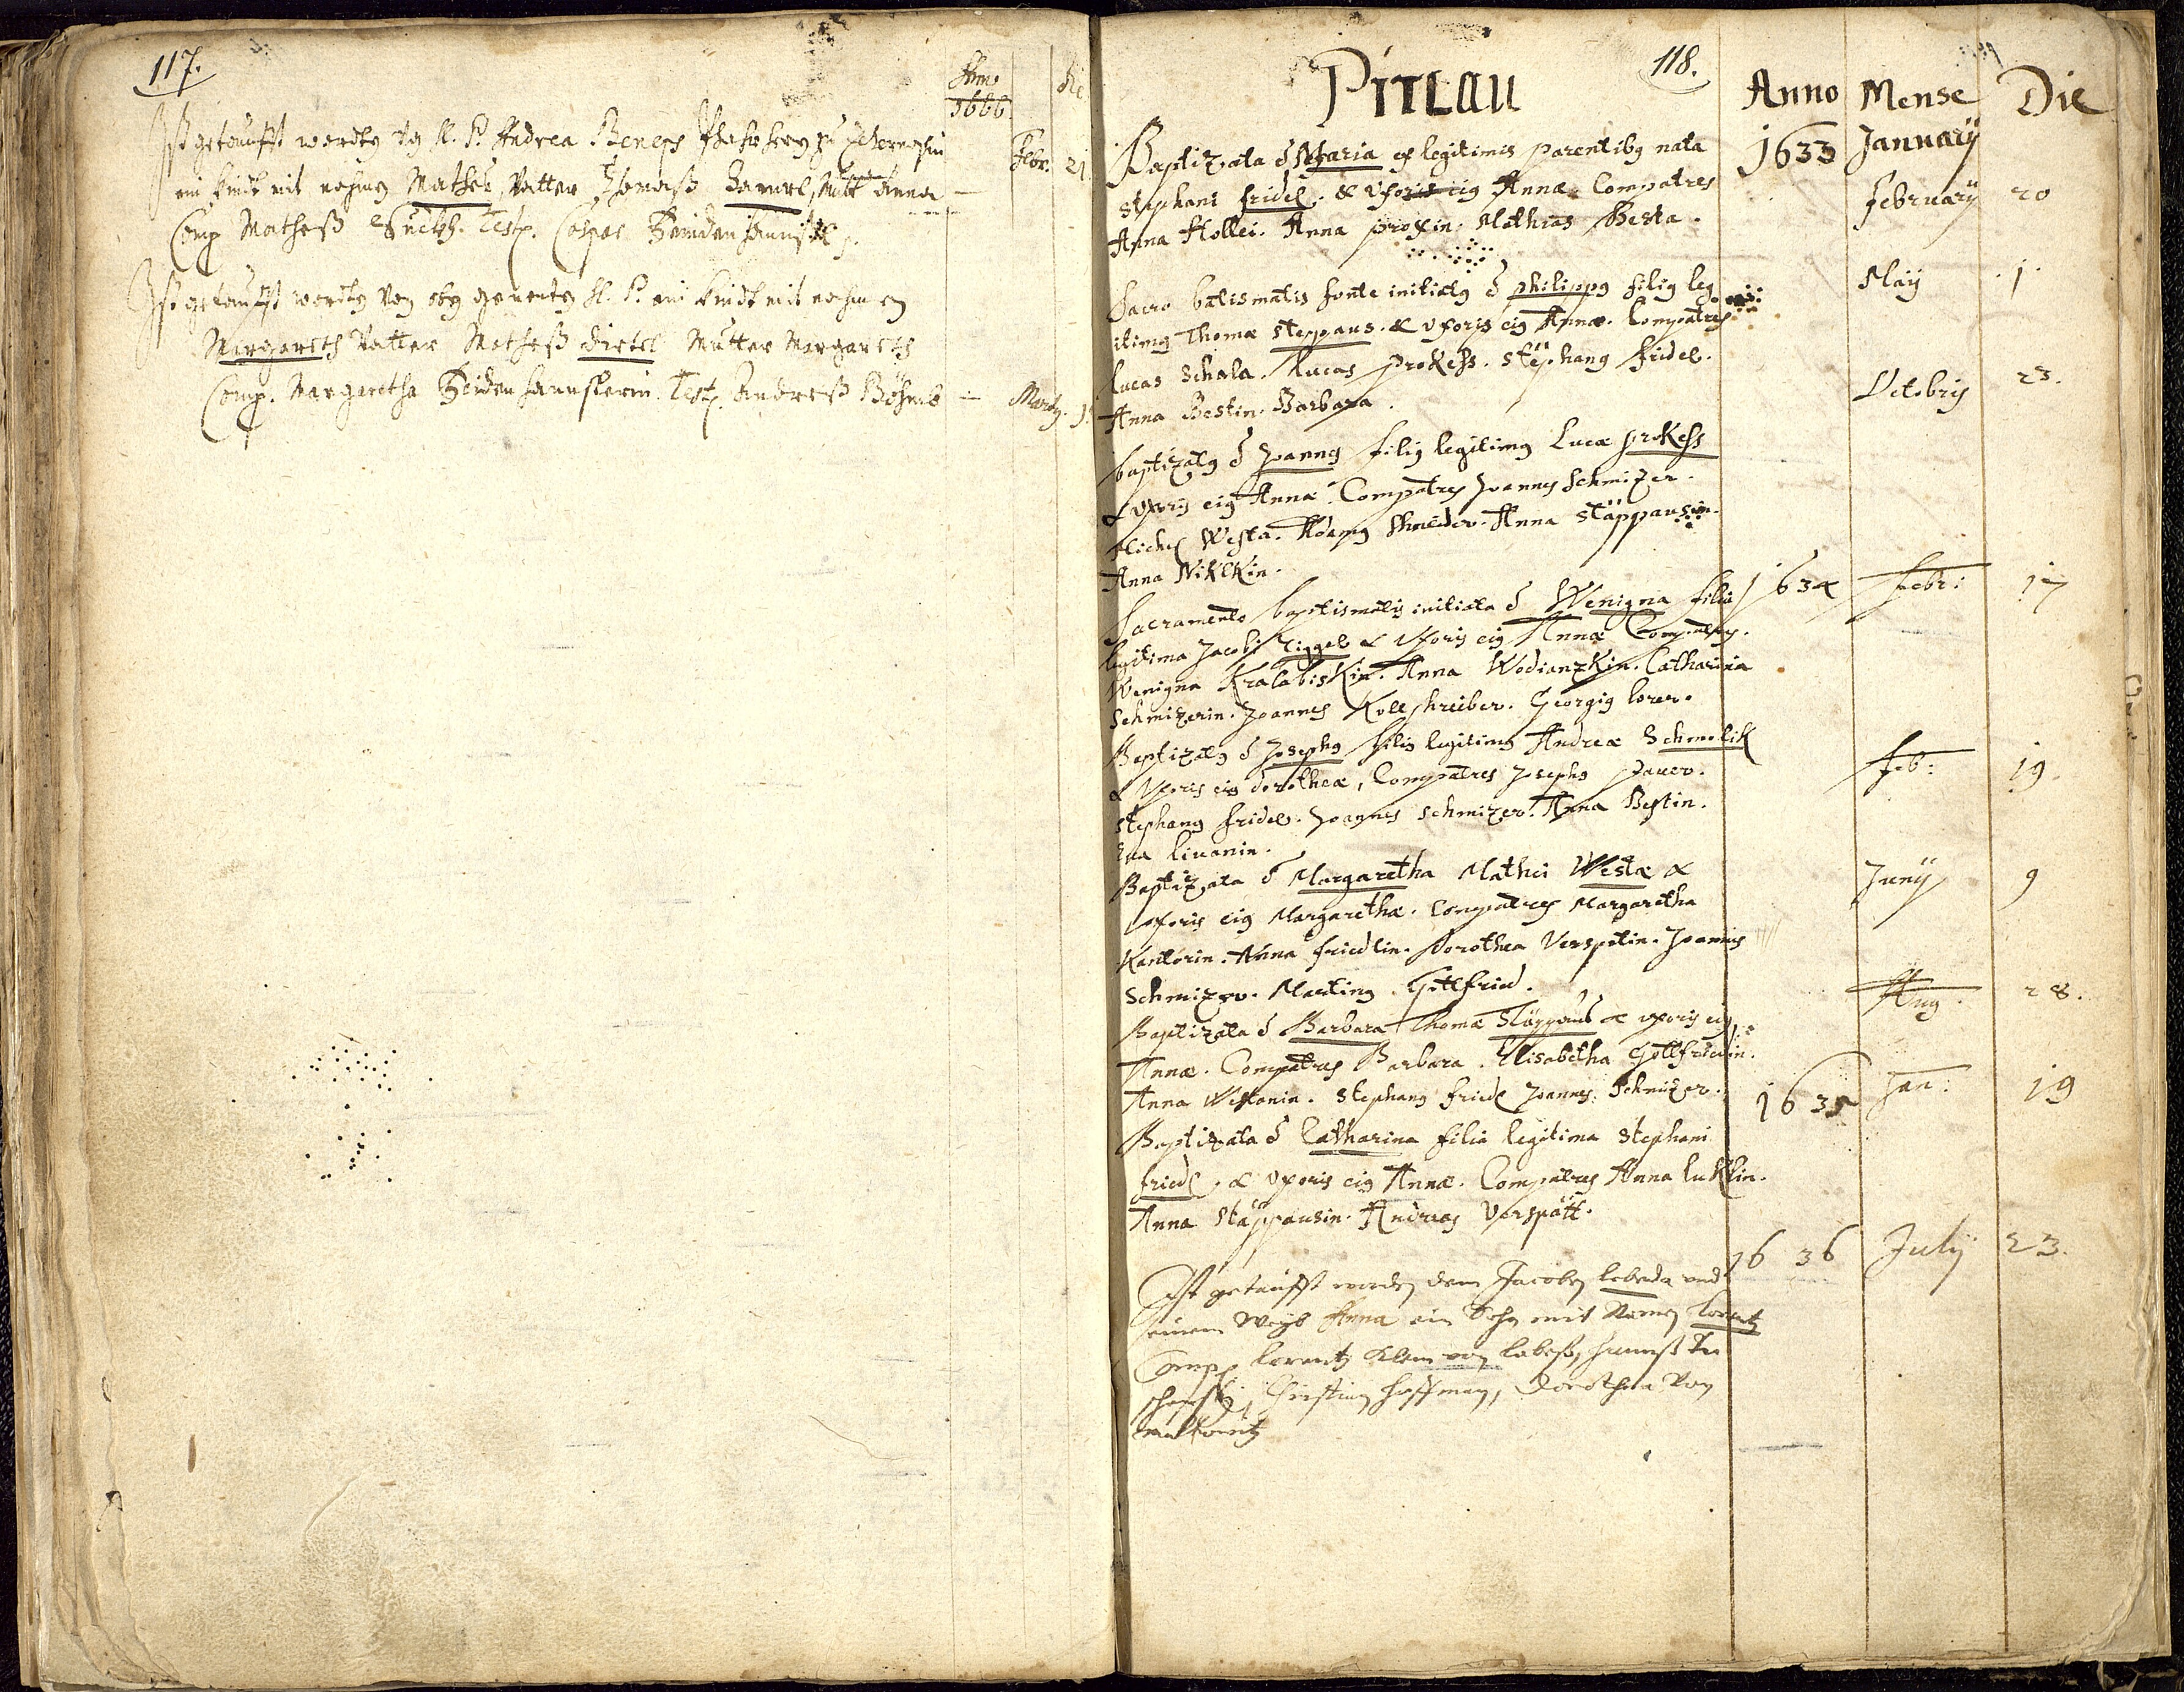 117.
Anno
1666
Die
Ist getaufft worden von H. P. Andrea Beneps Pfahrherrn zu Tschernoschin
ein Kindt mit nahmen Mathes, Vatter Thomaß Zamorl, Mutt Anna
Febr. 21.
Comp Matheß Test. Caspar
Ist getaufft worden von oben genenten H. P. ein Kindt mit nahmen
Margareth Vatter Matheß dietel Mutter Margareth
Comp. Margaretha Test. Andreß Böhmb
Marty. 1
118.
Pitlau
Anno Mense Die
1633 Januarij
Baptizata ē Maria ex legitimis parentibus nata
Stephani fridel. & Uxoris eius Annæ. Compatres
Februarij 20
Anna Hollei. Anna proxin. Mathias Besta.
Sacro batismatis fonte initiatus ē philippus filius leg
Maij 1
itimus Thomæ Steppaus. & Uxoris eius Annæ. Compatres
Lucas Schala. Lucas Prokess. Stephanus fridel.
Anna Bestin. Barbara.
Octobris 23.
baptizatus ē Joannes filius legitimus Lucæ prokess
& Uxoris eius Annæ. Compatres Joannes Schmizer.
Michel Westa. Adamus Shneider. Anna Stäppausin.
Anna Niklkin.
Sacramento baptismatis initiata ē Wenigna filia
1634 Febr: 17
legitima Jacobi Ziggel & Uxoris eius Annæ Compatres.
Wenigna Kralabiskin. Anna Wodianzkin. Catharina
Schmizerin. Joannes Kollshreiber. Georgius lorer.
Baptizatus ē Josephus filius legitimus Andreæ Schmelik
Feb: 19.
& Uxoris eius dorotheæ, Compatres Josephus pauer.
Stephanus fridel. Joannes Schmizer. Anna Bestin.
Eua liuanin.
Baptizata ē Margaretha Mathei Westæ &
Junij 9
Uxoris eius Margarethæ. Compatres Margaretha
Kantorin. Anna friedlin. Dorothea Verspetin. Joannis
Schmizer. Martinus Gottfried.
Aug. 28.
Baptizata ē Barbara Thomæ Stöppaus & uxoris eius
Annæ. Compatres Barbara. Elisabetha Gottfriedin.
Anna Westanin. Stephanus friedl Joannes Schmizer.
1635 Jan: 19
Baptizata ē Catharina filia legitima Stephani
friedl. & Uxoris eius Annæ. Compatres Anna luklin.
Anna Stäppausin. Andreas Verspätt.
1636 July 23.
Ist getaufft worden dem Jacoben lebeda und
seinem Weyb Anna ein Sohn mit Namen Lorentz
Compp Lorentz Klem von labeß, Hannß
Christian Hoffman, Dorothea von